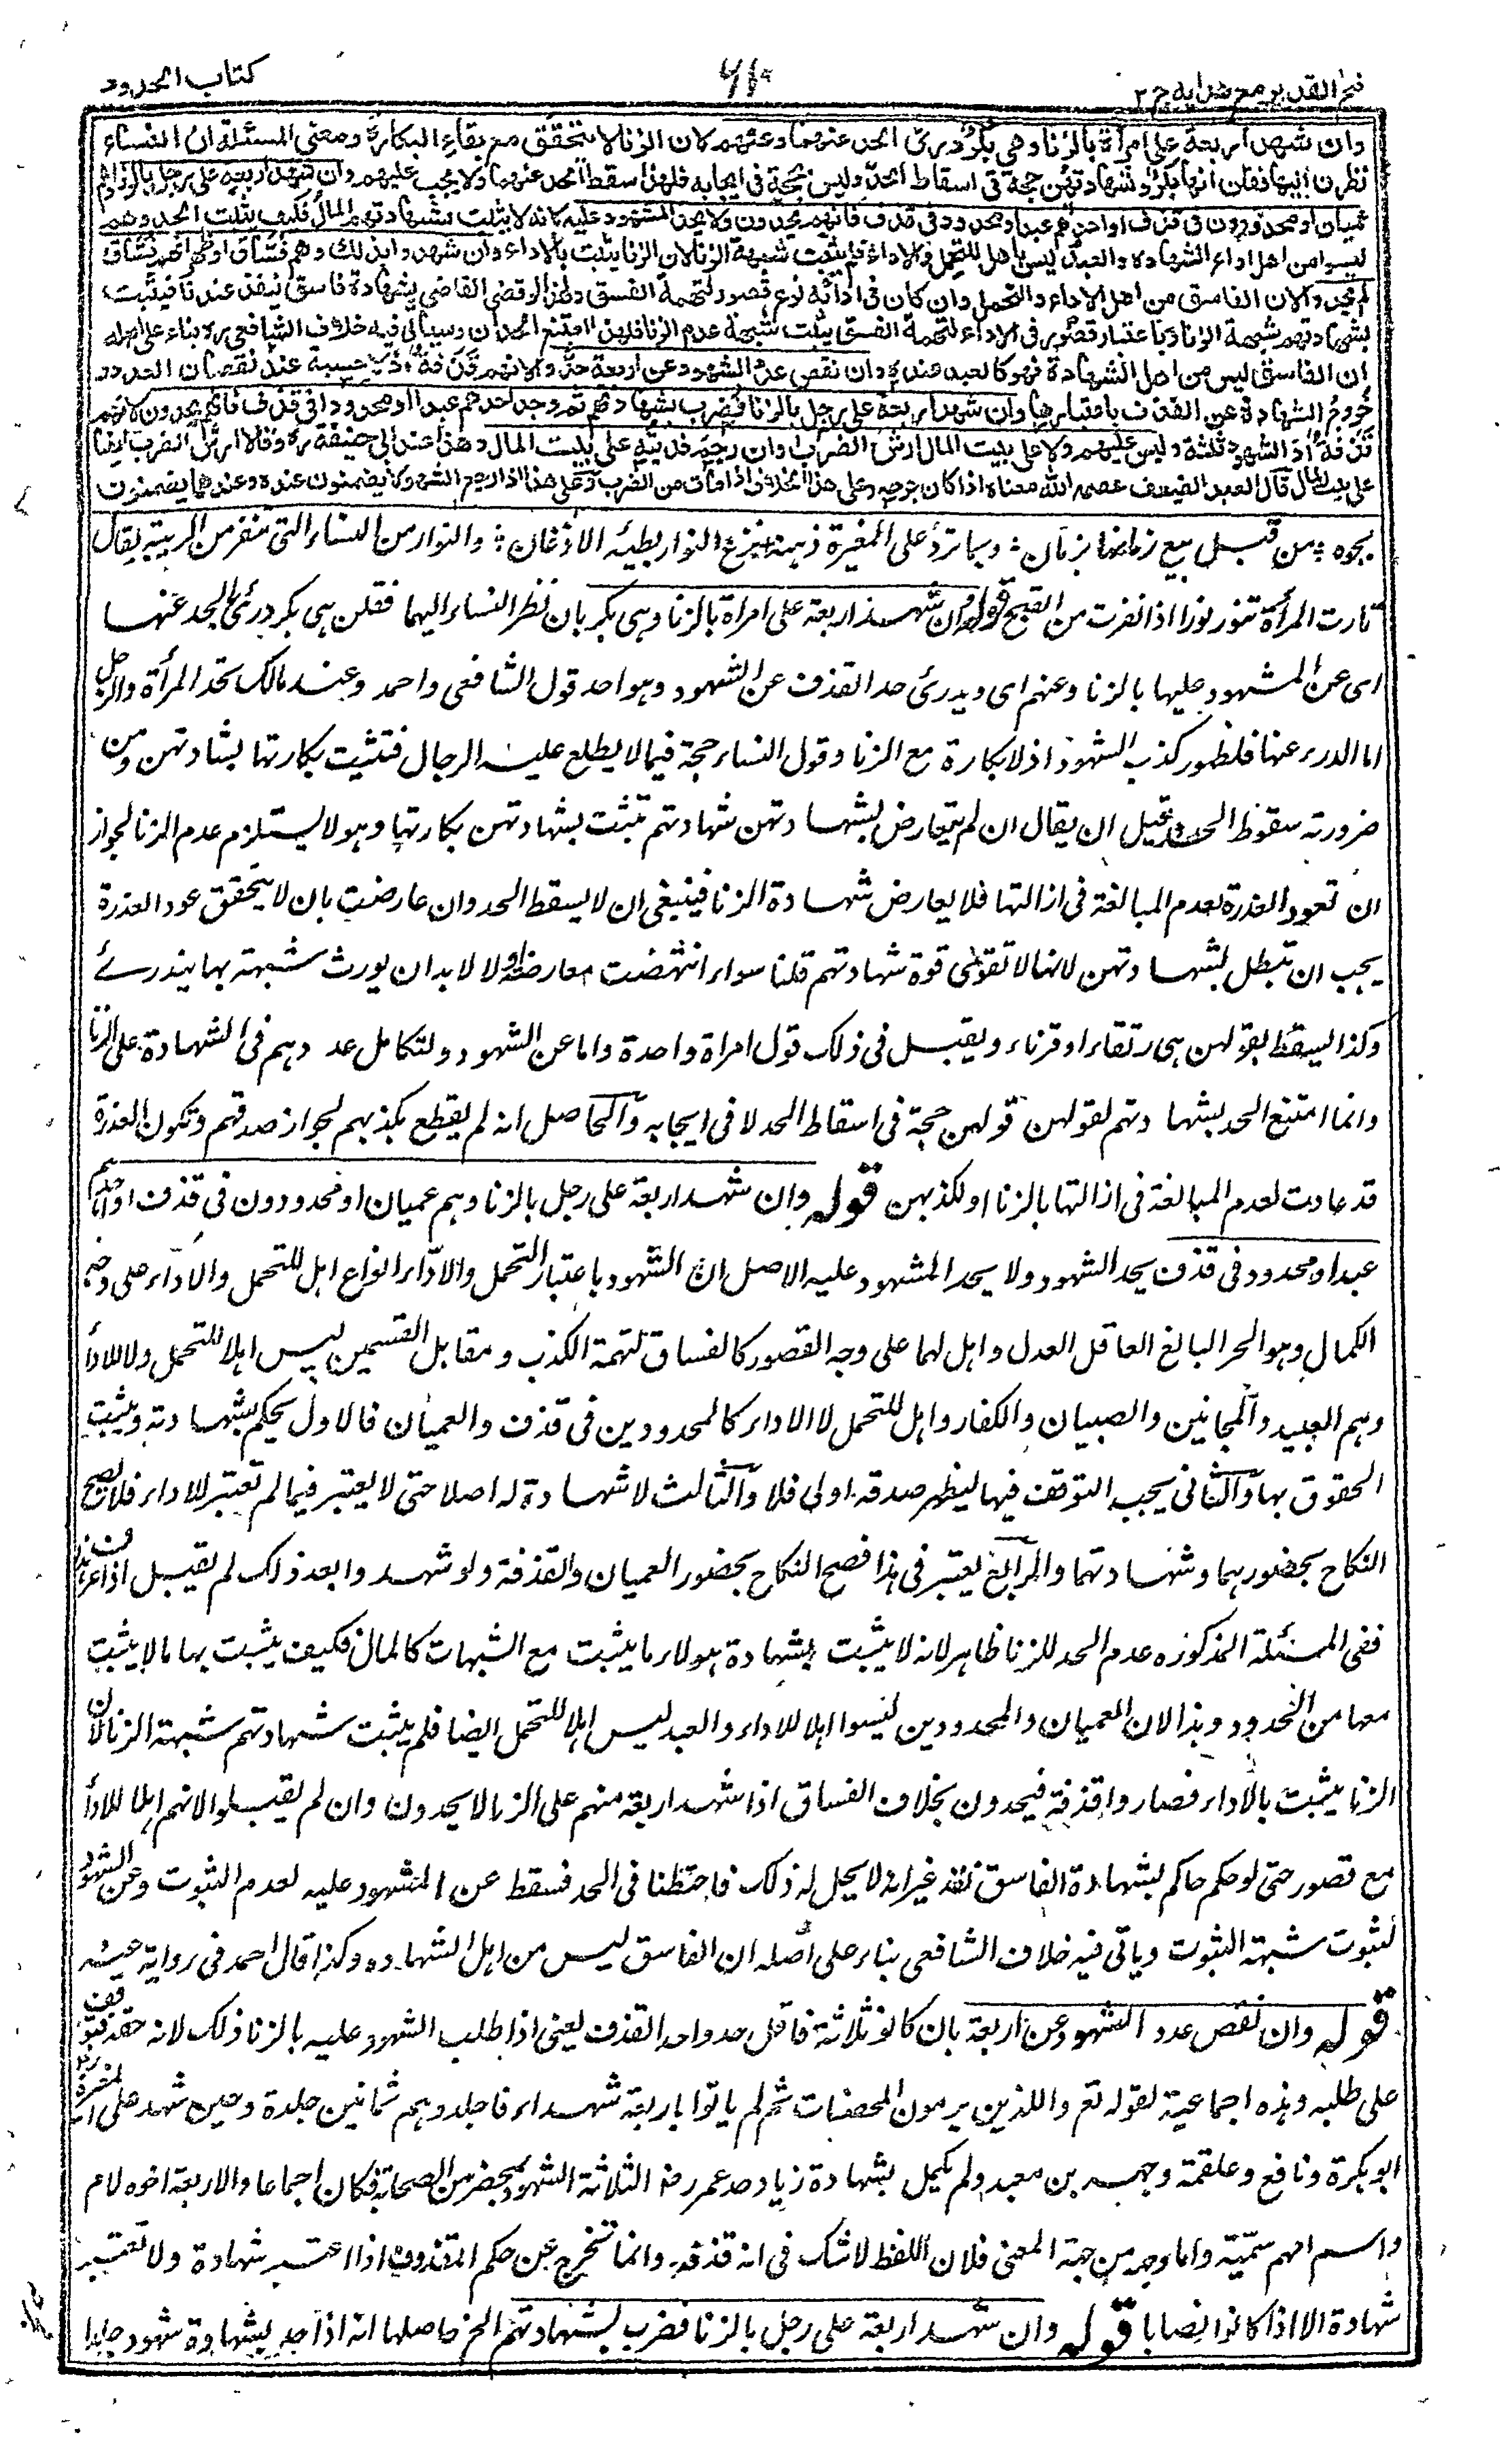 فتح القدير مع هدايه ج ٢
٦١٠
كتاب الحدود
وان شهد اربعة على امرأة بالزنا وهي بكر درئ الحد عنهما وعنهم لان الزنا لا يتحقق مع بقاء البكارة ومعنى المسئلة ان النساء
نظرن اليها فقلن انها بكر وشهادتهن حجة في اسقاط الحد وليس بحجة في ايجابه فلهذا سقط الحد عنهما ولا يجب عليهم وان شهد اربعة على رجل بالزنا وهم
عميان او محدودون في قذف او احدهم عبد او محدود في قذف فانهم يحدون ولا يحد المشهود عليه لانه لا يثبت بشهادتهم المال فكيف يثبت الحد وهم
ليسوا من اهل اداء الشهادة والعبد ليس باهل للتحمل والاداء فلم يثبت شبهة الزنا لان الزنا يثبت بالاداء وان شهدوا بذلك وهم فساق او ظهر انهم فساق
لم يحدوا لان الفاسق من اهل الاداء والتحمل وان كان في ادائه نوع قصور لتهمة الفسق ولهذا لو قضى القاضي بشهادة فاسق ينفذ عندنا فيثبت
بشهادتهم شبهة الزنا وباعتبار قصور في الاداء لتهمة الفسق يثبت شبهة عدم الزنا فلهذا امتنع الحدان وسيأتي فيه خلاف الشافعي ره بناء على اصله
ان الفاسق ليس من اهل الشهادة فهو كالعبد عنده وان نقص عدد الشهود عن اربعة حدوا لانهم قذفة اذ لا حسبة عند نقصان العدد و
خروج الشهادة عن القذف باعتبارها وان شهد اربعة على رجل بالزنا فضرب بشهادتهم ثم وجد احدهم عبدا او محدودا في قذف فانهم يحدون لانهم
قذفة اذ الشهود ثلثة وليس عليهم ولا على بيت المال ارش الضرب وان رجم فديته على بيت المال وهذا عند ابي حنيفة ره وقالا ارش الضرب ايضا
على بيت المال قال العبد الضعيف عصمه الله معناه اذا كان جرحه وعلى هذا الخلاف اذا مات من الضرب وعلى هذا اذا رجع الشهود لا يضمنون عنده وعندهما يضمنون
بن قبل بيع زمانها بزمان ؛ وبما ترد على المغيرة ذيمته نزغ النوار بطيئه الاذغان ؛ والنوار من النساء التي تنفر من الريبة يقال
نارت المرأة تنور نورا اذا نفرت من القبيح قوله وان شهد اربعة على امراة بالزنا وهي بكر بان نظر النساء اليها فقلن هي بكر درئ الحد عنها
اى عن المشهود عليها بالزنا وعنهم اى ويدرئ حد القذف عن الشهود وهو احد قول الشافعى واحمد وعند مالك تحد المرأة والرجل
اما الدرء عنها فلظهور كذب الشهود اذ لا بكارة مع الزنا وقول النساء حجة فيما لا يطلع عليه الرجال فتثبت بكارتها بشهادتهن ومن
ضرورته سقوط الحد وقيل ان يقال ان لم يتعارض بشهادتهن شهادتهم تثبت بشهادتهن بكارتها وهو لا يستلزم عدم الزنا لجواز
ان تعود العذرة لعدم المبالغة فى ازالتها فلا يعارض شهادة الزنا فينبغى ان لا يسقط الحد وان عارضت بان لا يتحقق عود العذرة
يجب ان تبطل بشهادتهن لانها لا تقوى قوة شهادتهم قلنا سواء انتهضت معارضة او لا لا بد ان يورث شبهة بها يندرئ
وكذا يسقط بقولهن هى رتقاء او قرناء ويقبل فى ذلك قول امراة واحدة واما عن الشهود ولتكامل عددهم فى الشهادة على الزنا
وانما امتنع الحد بشهادتهم لقولهن قولهن حجة فى اسقاط الحد لا فى ايجابه والحاصل انه لم يقطع بكذبهم لجواز صدقهم وتكون العذرة
قد عادت لعدم المبالغة فى ازالتها بالزنا او لكذبهن قوله وان شهد اربعة على رجل بالزنا وهم عميان او محدودون فى قذف او احدهم
عبد او محدود فى قذف يحد الشهود ولا يحد المشهود عليه الاصل ان الشهود باعتبار التحمل والاداء انواع اهل للتحمل والاداء على وجه
الكمال وهو الحر البالغ العاقل العدل واهل لهما على وجه القصور كالفساق لتهمة الكذب ومقابل القسمين ليس اهلا للتحمل ولا للاداء
وهم العبيد والمجانين والصبيان والكفار واهل للتحمل لا الاداء كالمحدودين فى قذف والعميان فالاول يحكم بشهادته ويثبت
الحقوق بها والثانى يجب التوقف فيها ليظهر صدقه اولى فلا والثالث لا شهادة له اصلا حتى لا يعتبر فيما لم تعتبر للاداء فلا يصح
النكاح بحضورهما وشهادتهما والرابع يعتبر فى هذا فصح النكاح بحضور العميان والقذفة ولو شهدوا بعد ذلك لم يقبل اذا عرف
ففى المسئلة المذكوره عدم الحد للزنا ظاهر لانه لا يثبت بشهادة هولاء ما يثبت مع الشبهات كالمال فكيف يثبت بها ما لا يثبت
معها من الحدود وهذا لان العميان والمحدودين ليسوا اهلا للاداء والعبد ليس اهلا للتحمل ايضا فلم يثبت بشهادتهم شبهة الزنا لان
الزنا يثبت بالاداء فصاروا قذفة فيحدون بخلاف الفساق اذا شهد اربعة منهم على الزنا لا يحدون وان لم يقبلوا لانهم اهل للاداء
مع قصور حتى لو حكم حاكم بشهادة الفاسق نفذ غير انه لا يحل له ذلك فاحتطنا فى الحد فسقط عن المشهود عليه لعدم الثبوت وعن الشهود
لثبوت شبهة الثبوت وياتى فيه خلاف الشافعى بناء على اصله ان الفاسق ليس من اهل الشهاده وكذا قال احمد فى رواية عنه
قوله وان نقص عدد الشهود عن اربعة بان كانوا ثلاثة فاقل حدوا حد القذف يعنى اذا طلب الشهود عليه بالزنا ذلك لانه حقه فتوقف
على طلبه وهذه اجماعية لقوله تع والذين يرمون المحصنات ثم لم ياتوا باربعة شهداء فاجلدوهم ثمانين جلدة وحين شهد على المغيرة
ابو بكرة ونافع وعلقمة وجهد بن معبد ولم يكمل بشهادة زياد حد عمر رض الثلاثة الشهود بمحضر من الصحابة فكان اجماعا والاربعة اخوه لام
واسم امهم سمية واما وجهه من جهة المعنى فلان اللفظ لا شك فى انه قذف وانما تخرج عن حكم القذف اذا اعتبر شهادة ولا تعتبر
شهادة الا اذا كانوا نصابا قوله وان شهد اربعة على رجل بالزنا فضرب بشهادتهم الخ حاصلها انه اذا حد بشهادة شهود جلدا